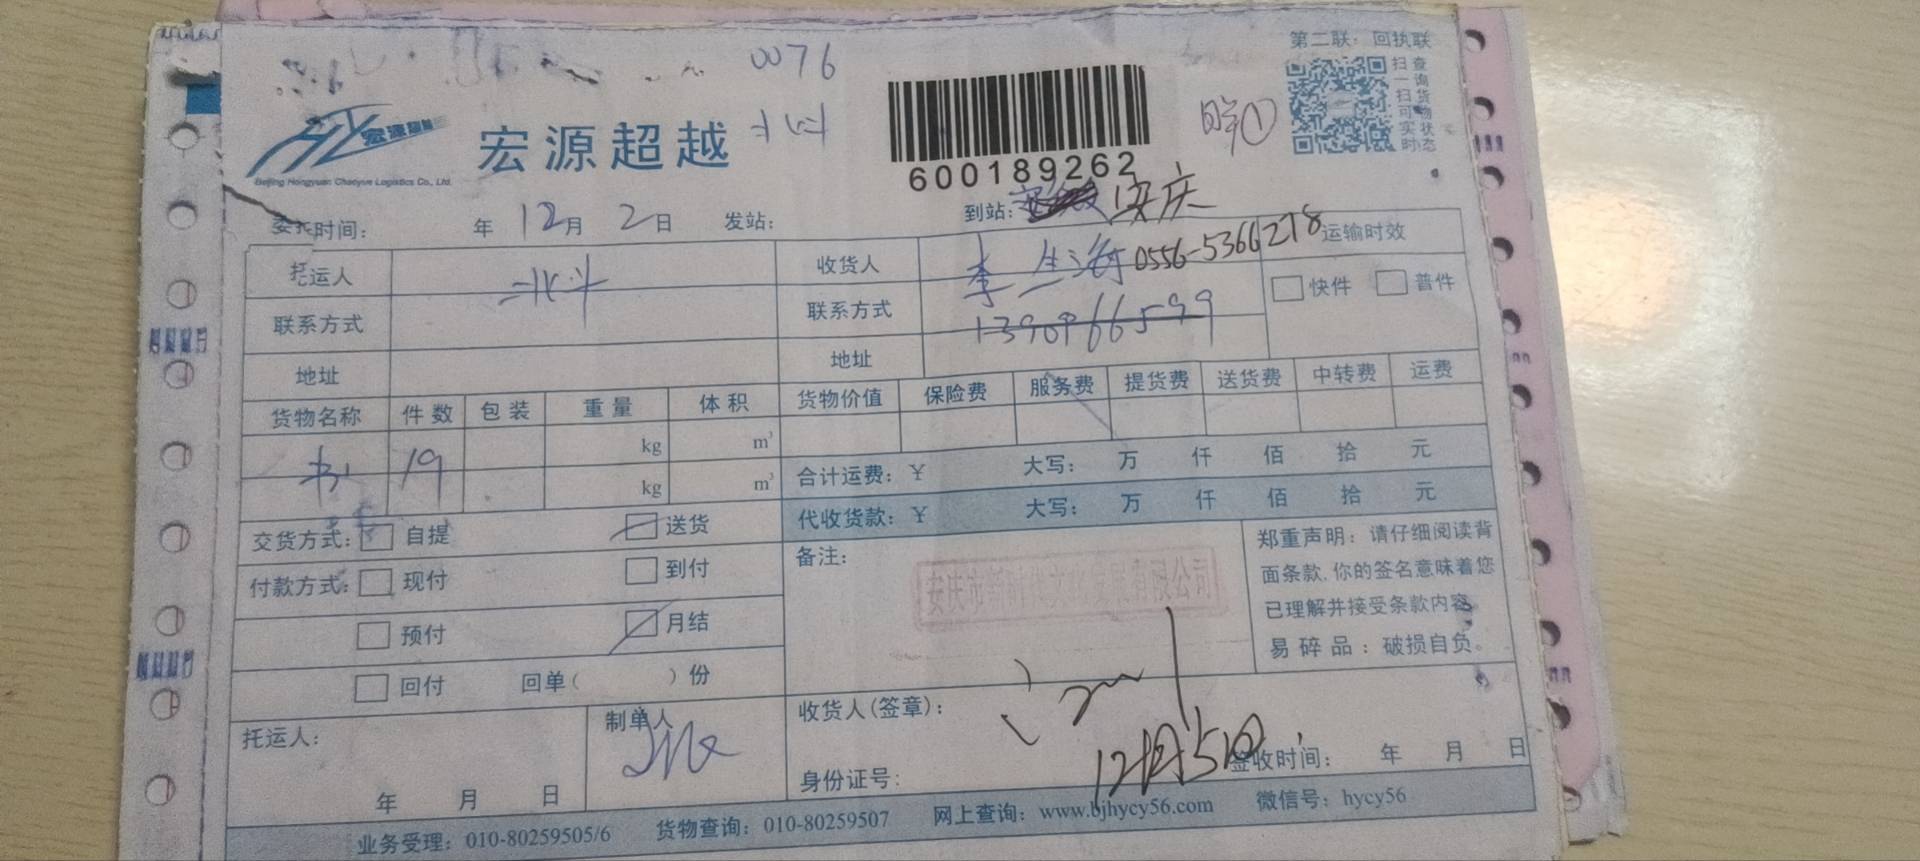 0076
第二联：回执联
扫一扫可实时
查询货物状态
宏源超越
宏源超越
北斗
Beijing Hongyuan Chaoyue Logistics Co., Ltd.
600189262
委托时间： 年 12月 2日 发站： 到站： 安庆
托运人 北斗 收货人 李 生海 0556-5366278 运输时效
联系方式 联系方式 13909666599 快件 普件
地址 地址
货物名称 件数 包装 重量 体积 货物价值 保险费 服务费 提货费 送货费 中转费 运费
书 19 kg m³
kg m³ 合计运费：￥ 大写： 万 仟 佰 拾 元
代收货款：￥ 大写： 万 仟 佰 拾 元
交货方式： 自提 送货 备注：
付款方式： 现付 到付
预付 月结
回付 回单（ ）份
安庆市新时代文化发展有限公司
郑重声明：请仔细阅读背
面条款，你的签名意味着您
已理解并接受条款内容。
易碎品：破损自负。
托运人： 制单人 收货人(签章)：
年 月 日 身份证号： 12月5日 签收时间： 年 月 日
业务受理：010-80259505/6 货物查询：010-80259507 网上查询：www.bjhycy56.com 微信号：hycy56